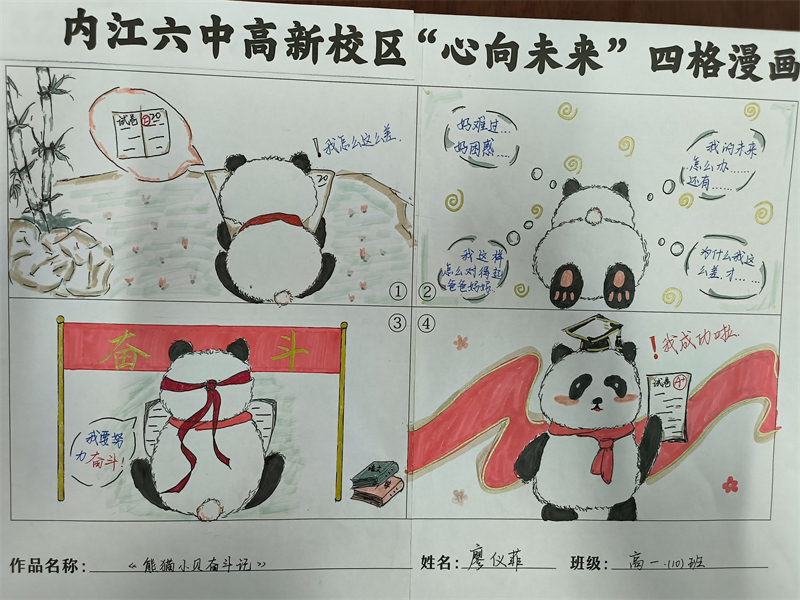 内江六中高新校区“心向未来” 四格漫画
试卷
20
我怎么这么差.
20
①
②
好难过...
好困惑....
我的未来
怎么办......
还有......
我这样
怎么对得起
爸爸妈妈.
为什么我这
么差.才......
③
奋 斗
我要努
力奋斗!
④
我成功啦.
试卷 A+
作品名称: 《熊猫小贝奋斗记》
姓名: 廖仪菲
班级: 高一.(10)班